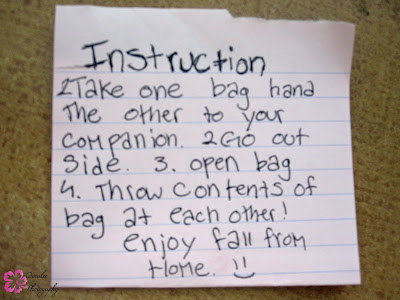 Instruction
1Take one bag hand
The other to your
companion. 2Go out
side. 3. open bag
4. Throw contents of
bag at each other!
enjoy fall from
Home.
Photography